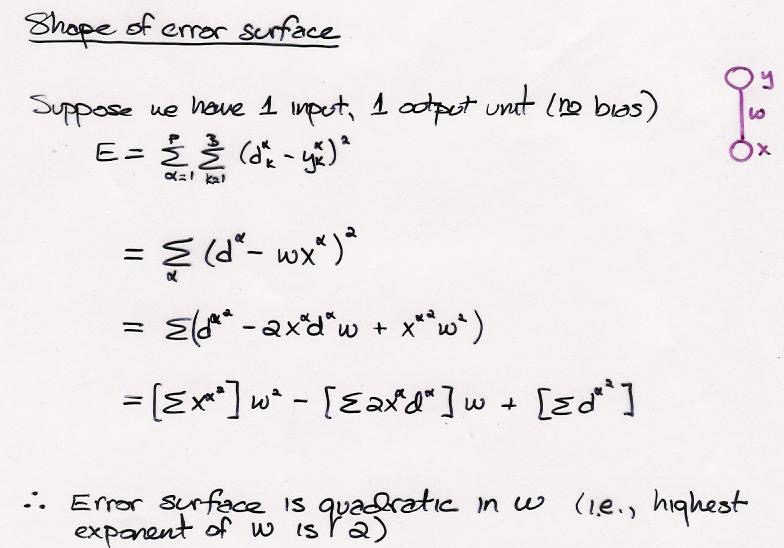 Shape of error surface
Suppose we have 1 input, 1 output unit (no bias)
y
w
x
E = Σ_{α=1}^{P} Σ_{k=1}^{3} (d_k^α - y_k^α)^2
= Σ_α (d^α - wx^α)^2
= Σ(d^{α^2} - 2x^α d^α w + x^{α^2} w^2)
= [Σx^{α^2}] w^2 - [Σ2x^α d^α] w + [Σd^{α^2}]
∴ Error surface is quadratic in w (i.e., highest
exponent of w is 2)